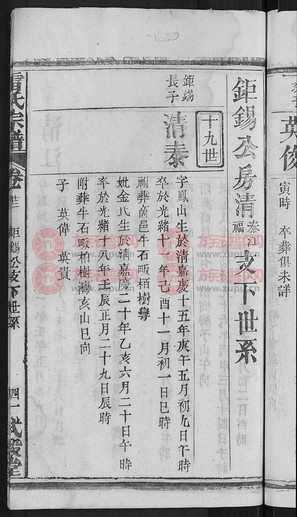 英俊
寅時 卒葬俱未詳
鉅錫公房清泰江福支下世系
十九世
鉅錫長子
清泰
字鳳山生於清嘉慶十五年庚午五月初九日午時
卒於光緒十二年己酉十一月初一日巳時
附葬蘭邑牛石畈柏樹灣
妣金氏生於清嘉慶二十年乙亥六月二十日午時
卒於光緒十八年壬辰正月二十九日辰時
附葬牛石畈柏樹灣亥山巳向
子 英偉 英貴
雷氏宗譜
卷
鉅錫公支下世系
四一
族譜网